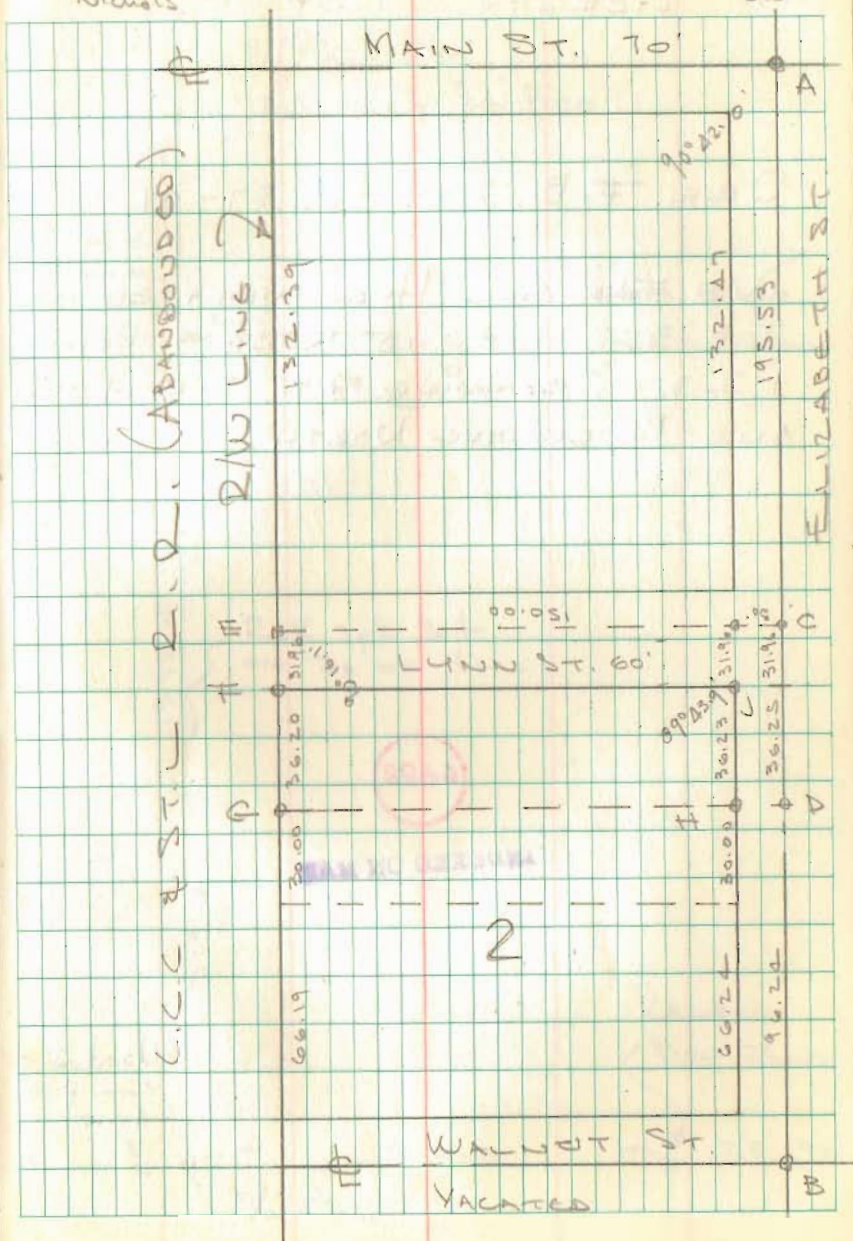 Nichols
MAIN ST. 70'
A
90° 42'
C.C.C & ST. L R.R. (ABANDONDED)
R/W LINE
132.39
132.47
195.53
ELIZABETH ST
E
150.00
C
31.96
LYNN ST. 60'
31.96
31.96
36.20
89° 43.9'
36.23
36.25
G
H
D
30.00
30.00
2
66.19
66.24
96.24
WALNUT ST.
VACATED
B